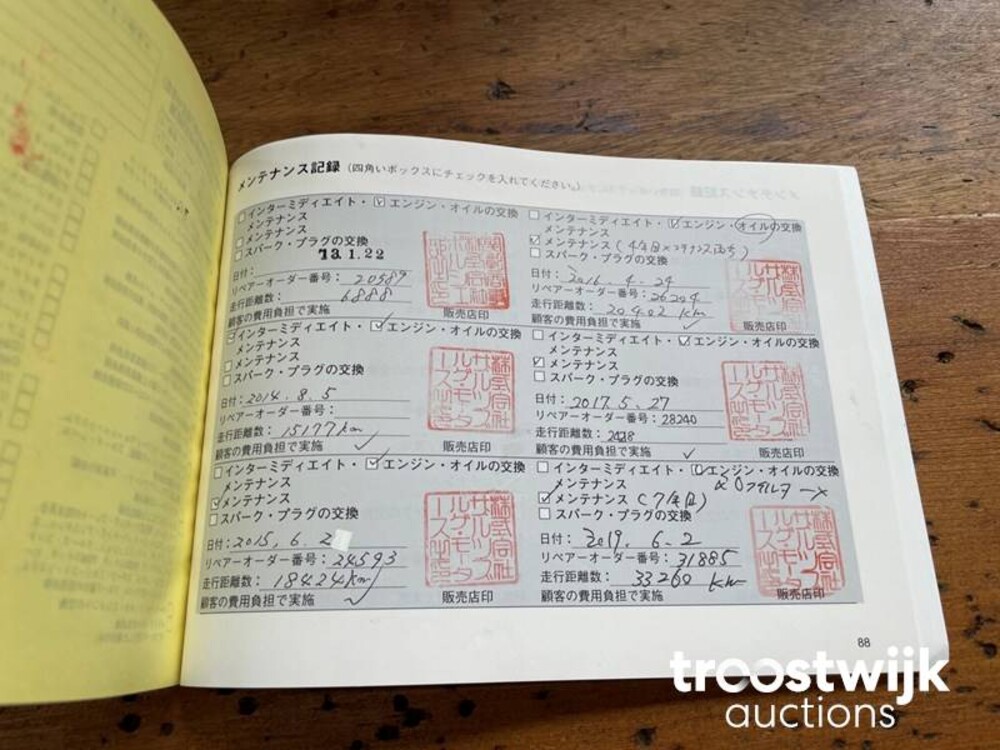 メンテナンス記録 (四角いボックスにチェックを入れてください。)
インターミディエイト・ エンジン・オイルの交換
メンテナンス
メンテナンス
スパーク・プラグの交換
日付: '13.1.22
リペアーオーダー番号: 20589
走行距離数: 6888
顧客の費用負担で実施
販売店印
インターミディエイト・ エンジン・オイルの交換
メンテナンス
メンテナンス
スパーク・プラグの交換
日付: 2014.8.5
リペアーオーダー番号:
走行距離数: 15177km
顧客の費用負担で実施
販売店印
株式会社サルッスルゲ・モータース
インターミディエイト・ エンジン・オイルの交換
メンテナンス
メンテナンス
スパーク・プラグの交換
日付: 2015, 6. 2
リペアーオーダー番号: 24593
走行距離数: 18424km
顧客の費用負担で実施
販売店印
インターミディエイト・ エンジン・オイルの交換
メンテナンス
メンテナンス (4年目
スパーク・プラグの交換
日付: 2016. 4. 24
リペアーオーダー番号: 26204
走行距離数: 20402 km
顧客の費用負担で実施
販売店印
インターミディエイト・ エンジン・オイルの交換
メンテナンス
メンテナンス
スパーク・プラグの交換
日付: 2017.5.27
リペアーオーダー番号: 28240
走行距離数:
顧客の費用負担で実施
販売店印
インターミディエイト・ エンジン・オイルの交換
メンテナンス
メンテナンス (7年目)
スパーク・プラグの交換
日付: 2019. 6. 2
リペアーオーダー番号: 31885
走行距離数: 33260 km
顧客の費用負担で実施
販売店印
88
troostwijk
auctions